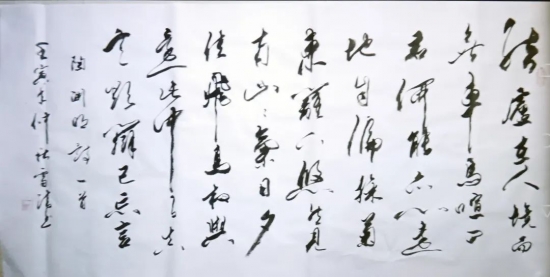 結廬在人境而
無車馬喧问
君何能尔心遠
地自偏採菊
東籬下悠然見
南山々氣日夕
佳飛鳥相與
還此中有真
意欲辯已忘言
陶渊明诗一首
壬寅年仲秋雪